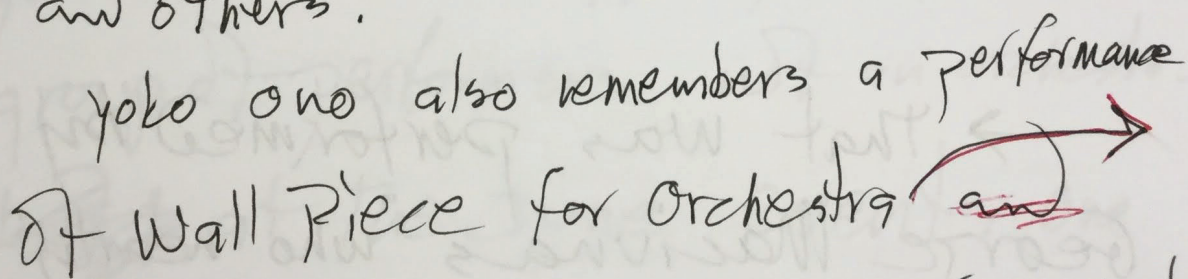 and others.
yoko ono also remembers a performance
of Wall Piece for Orchestra an